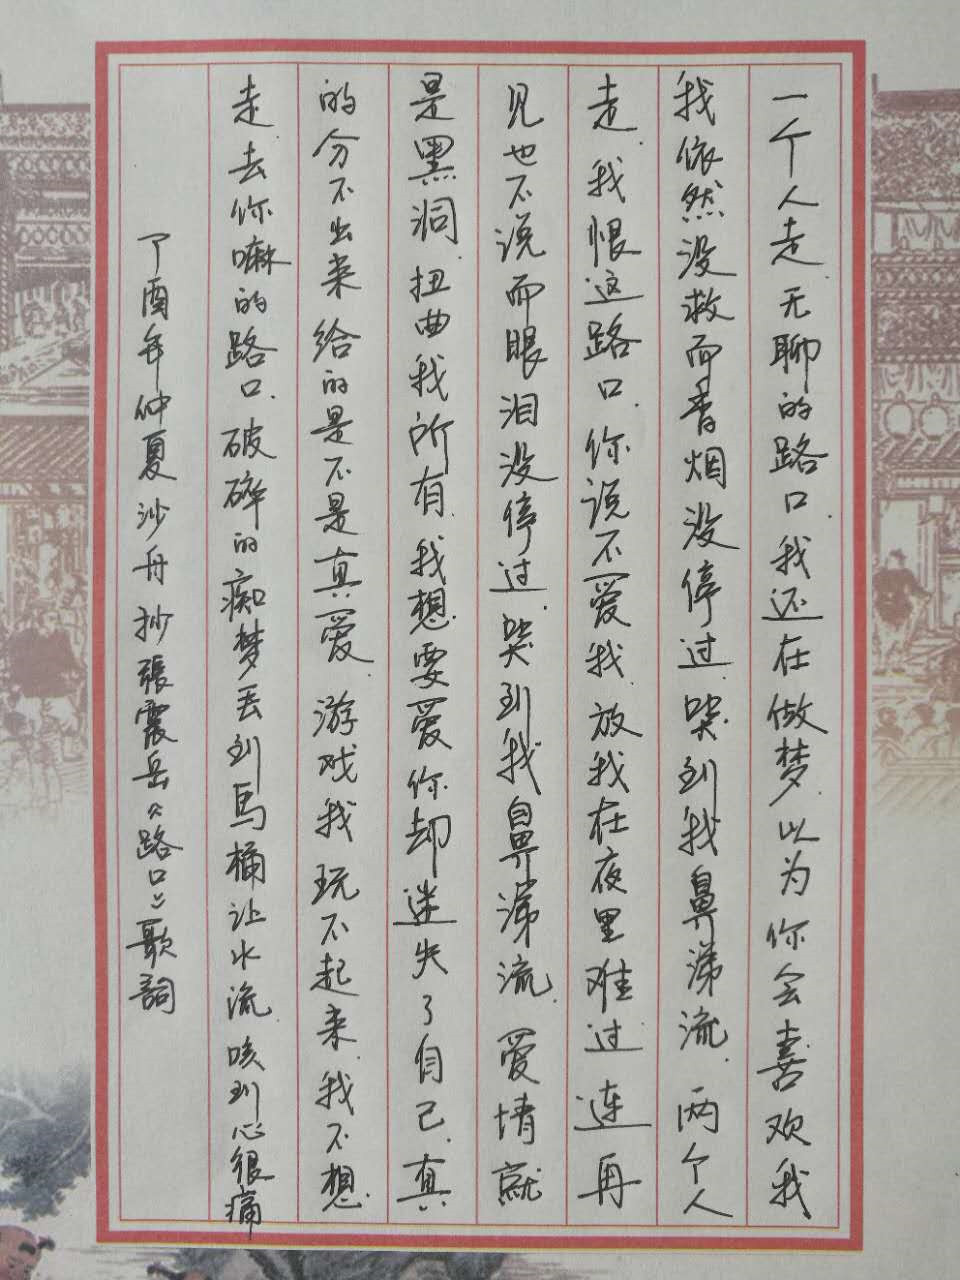 一个人走.无聊的路口.我还在做梦.以为你会喜欢我
我依然没救而香烟没停过.哭到我鼻涕流.两个人
走.我恨这路口.你说不爱我.放我在夜里难过.连再
见也不说而眼泪没停过.哭到我鼻涕流.爱情就
是黑洞.扭曲我所有.我想要爱你却迷失了自己.真
的分不出来给的是不是真爱.游戏我玩不起来.我不想
走.去你嘛的路口.破碎的痴梦丢到馬桶让水流.咳到心很痛
丁酉年仲夏沙舟抄張震岳《路口》歌詞